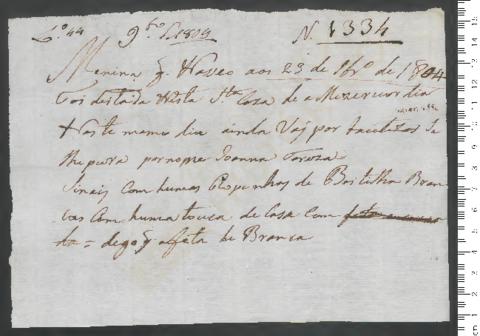 L.º 44 9.bro 1804 N. 1334
Menina q Nasceo aos 23 de 9br.º de 1804
foi deitada Nesta S.ta Caza de a Mizericordia
Noste memo dia ainda Vai por bautizar Se
lhe pora por nome Joanna Tereza
Sinais com humas Roupinhas de Bertilha Bran
cas Com huma touca de Casa com
da = digo q a fita he Branca